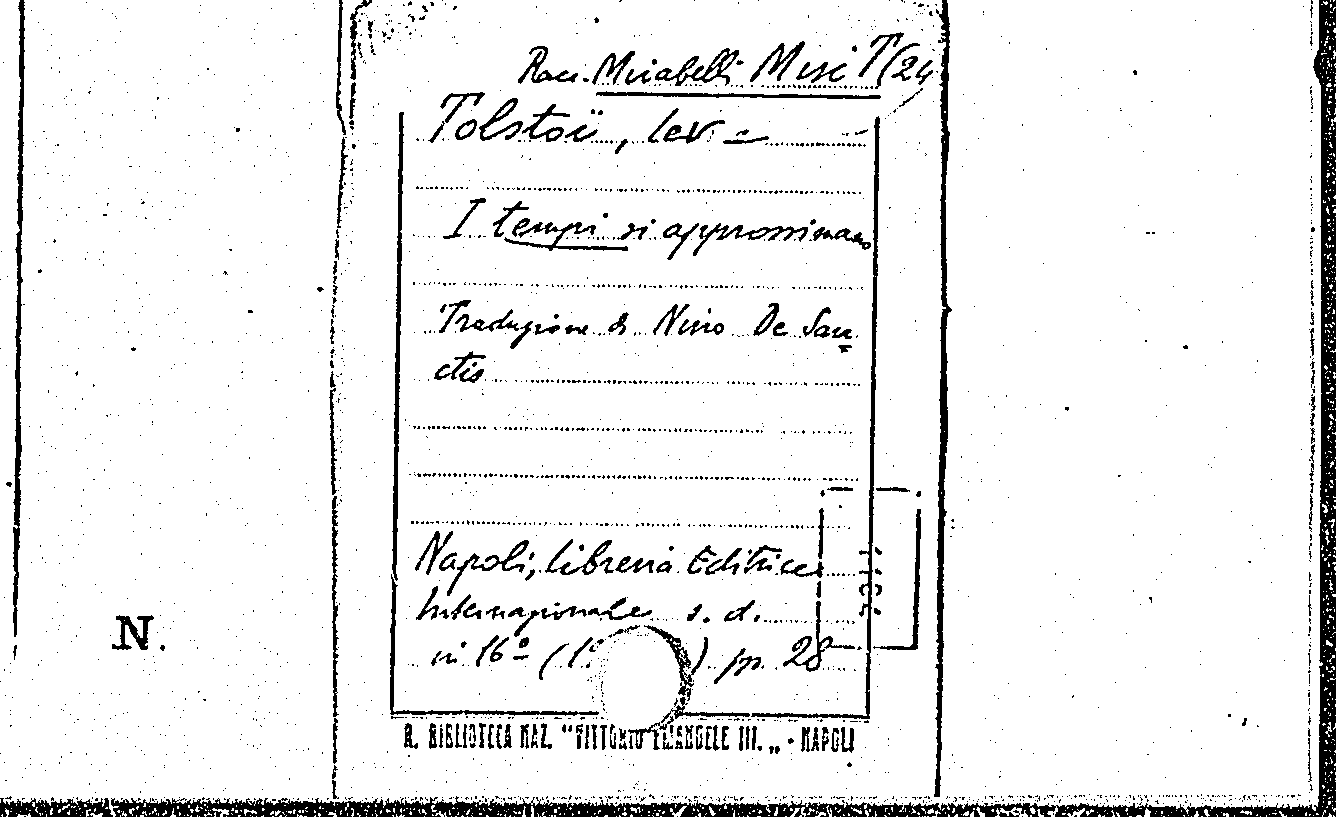 Racc. Mirabelli Misc T(24
Tolstoï, Lev -
I tempi si approssimano
Traduzione di Nino De San
ctis
Napoli, libreria Editrice
Internazionale s. d.
in 16º (1º ) pp 28
R. BIBLIOTECA NAZ. "VITTORIO EMANUELE III.„ - NAPOLI
N.